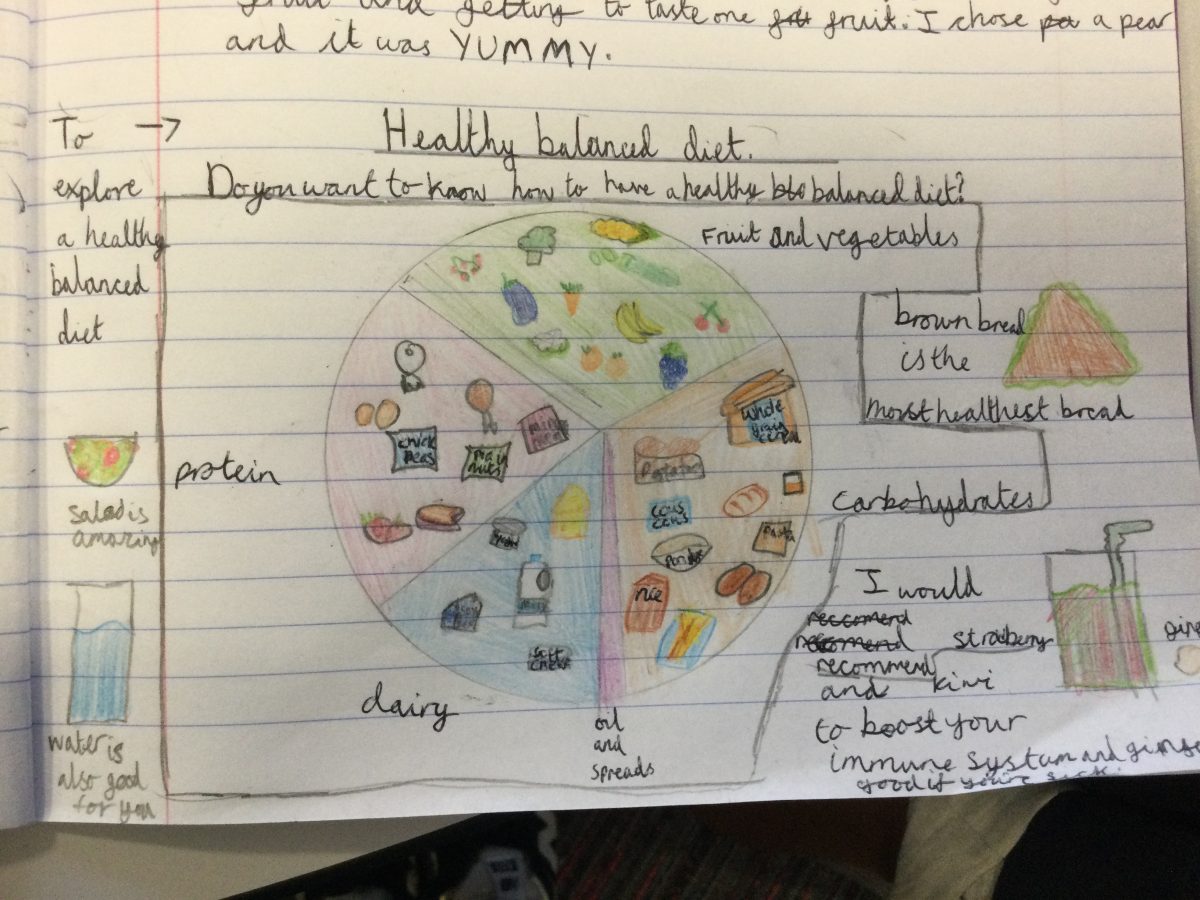 and getting to taste one fruit. I chose a pear
and it was YUMMY.
To →
explore
a healthy
balanced
diet
Healthy balanced diet.
Do you want to know how to have a healthy balanced diet?
Fruit and vegetables
brown bread
is the
most healthest bread
whole
grain
cereal
Potatoes
cous
cous
Pasta
rice
carbohydrates
protein
chick
peas
plain
nuts
dairy
soft
cheese
oil
and
spreads
salad is
amazing
water is
also good
for you
I would
reccomend
recommend
strawberry
and kiwi
to boost your
immune systam and ginge
good if you're sick